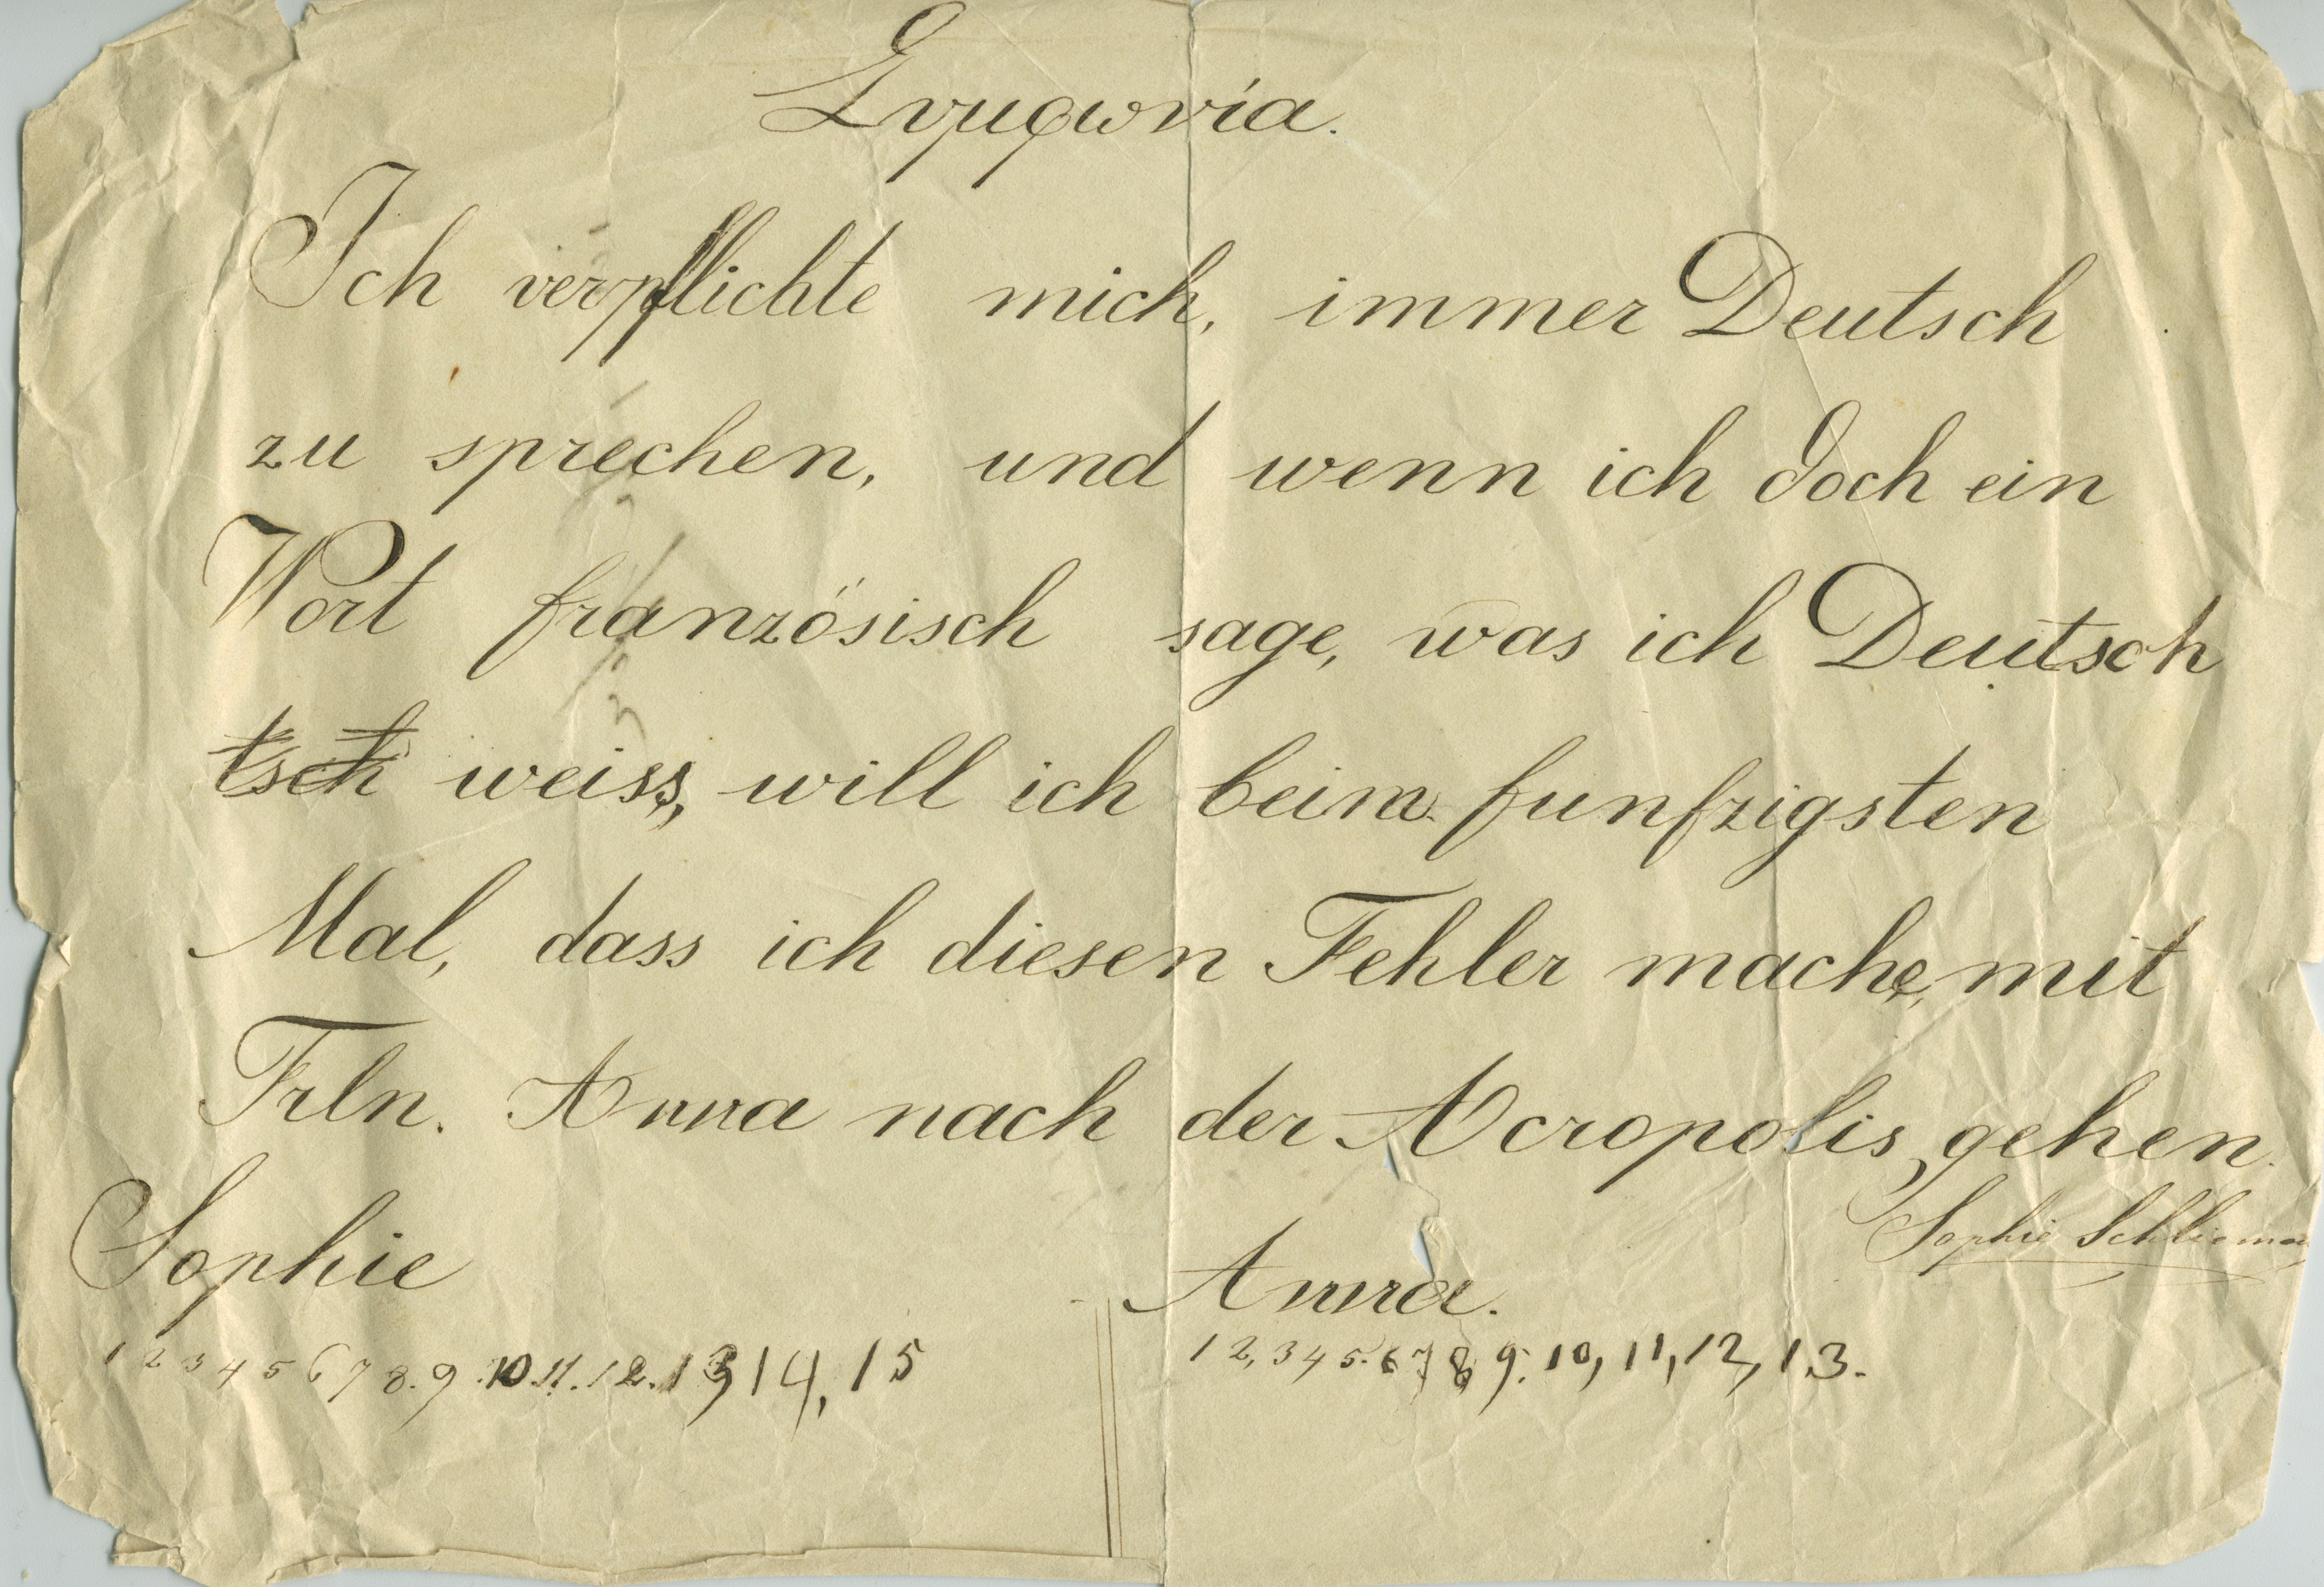 Συμφωνία.
Ich verpflichte mich, immer Deutsch
zu sprechen, und wenn ich doch ein
Wort französisch sage, was ich Deutsch
tsch weiss, will ich beim funfzigsten
Mal, dass ich diesen Fehler mache, mit
Frln. Anna nach der Acropolis gehen.
Sophie Schlieman
Sophie
1 2 3 4 5 6 7 8. 9. 10. 11. 12. 13 14, 15
Anna.
1 2, 3 4 5. 6 7 8 9. 10, 11, 12, 13.